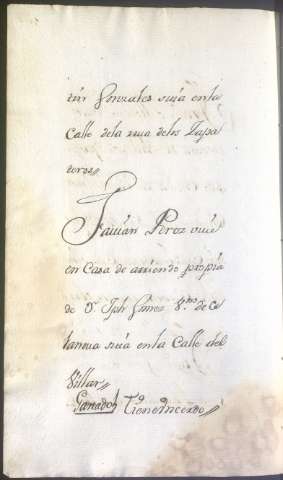 tin Gonzalez sita en la
Calle dela rua delos Zapa
teros=
Favián Perez vive
en Casa de arriendo propia
de Dn Jph Gomez Vno de
sita en la Calle del
Villar=
Ganado] Tiene un cerdo=